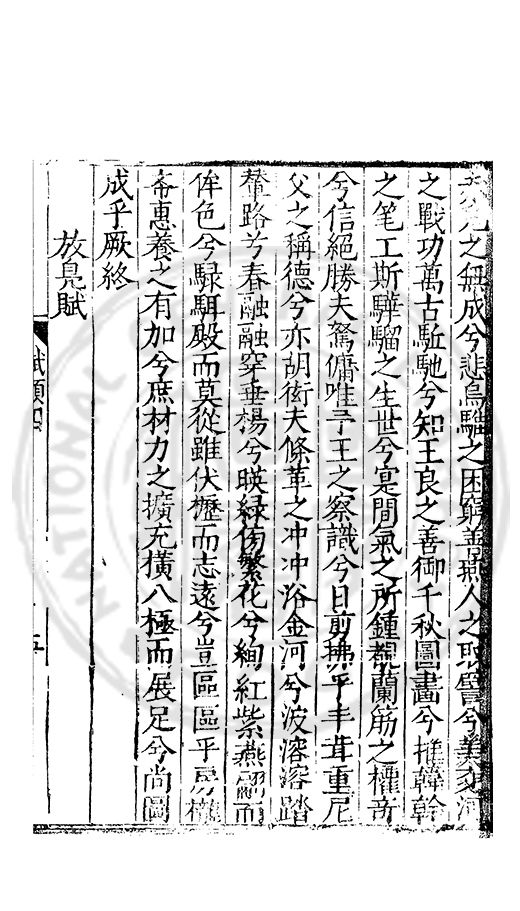 之無成兮悲烏騅之困窮善燕人之取譬兮美
之戰功萬古駈馳兮知王良之善御千秋圖畫兮推韓幹
之笔工斯驊騮之生世兮寔間氣之所鍾覩蘭筋之權竒
兮信絕勝夫駑傭唯予王之察識兮日剪拂乎丰茸重尼
父之稱德兮亦胡衒夫鞗革之冲冲浴金河兮波溶溶踏
輦路兮春融融穿垂楊兮暎綠傍繁花兮絢紅紫燕翩而
侔色兮騄駬殿而莫從雖伏櫪而志遠兮豈區區乎房櫳
斋惠養之有加兮庶材力之擴充横八極而展足兮尚圖
成乎厥終
放鳬賦
賦類四
五
NATIONAL CENTRAL